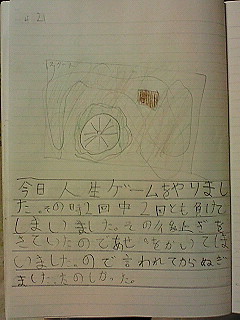 4 20
スタート
今日人生ゲームをやりまし
た。その時2回中2回とも負けて
しまいました。その後たぎを
さていたのであせをかいてしま
いました。ので言われてからぬぎ
ました。たのしかった。